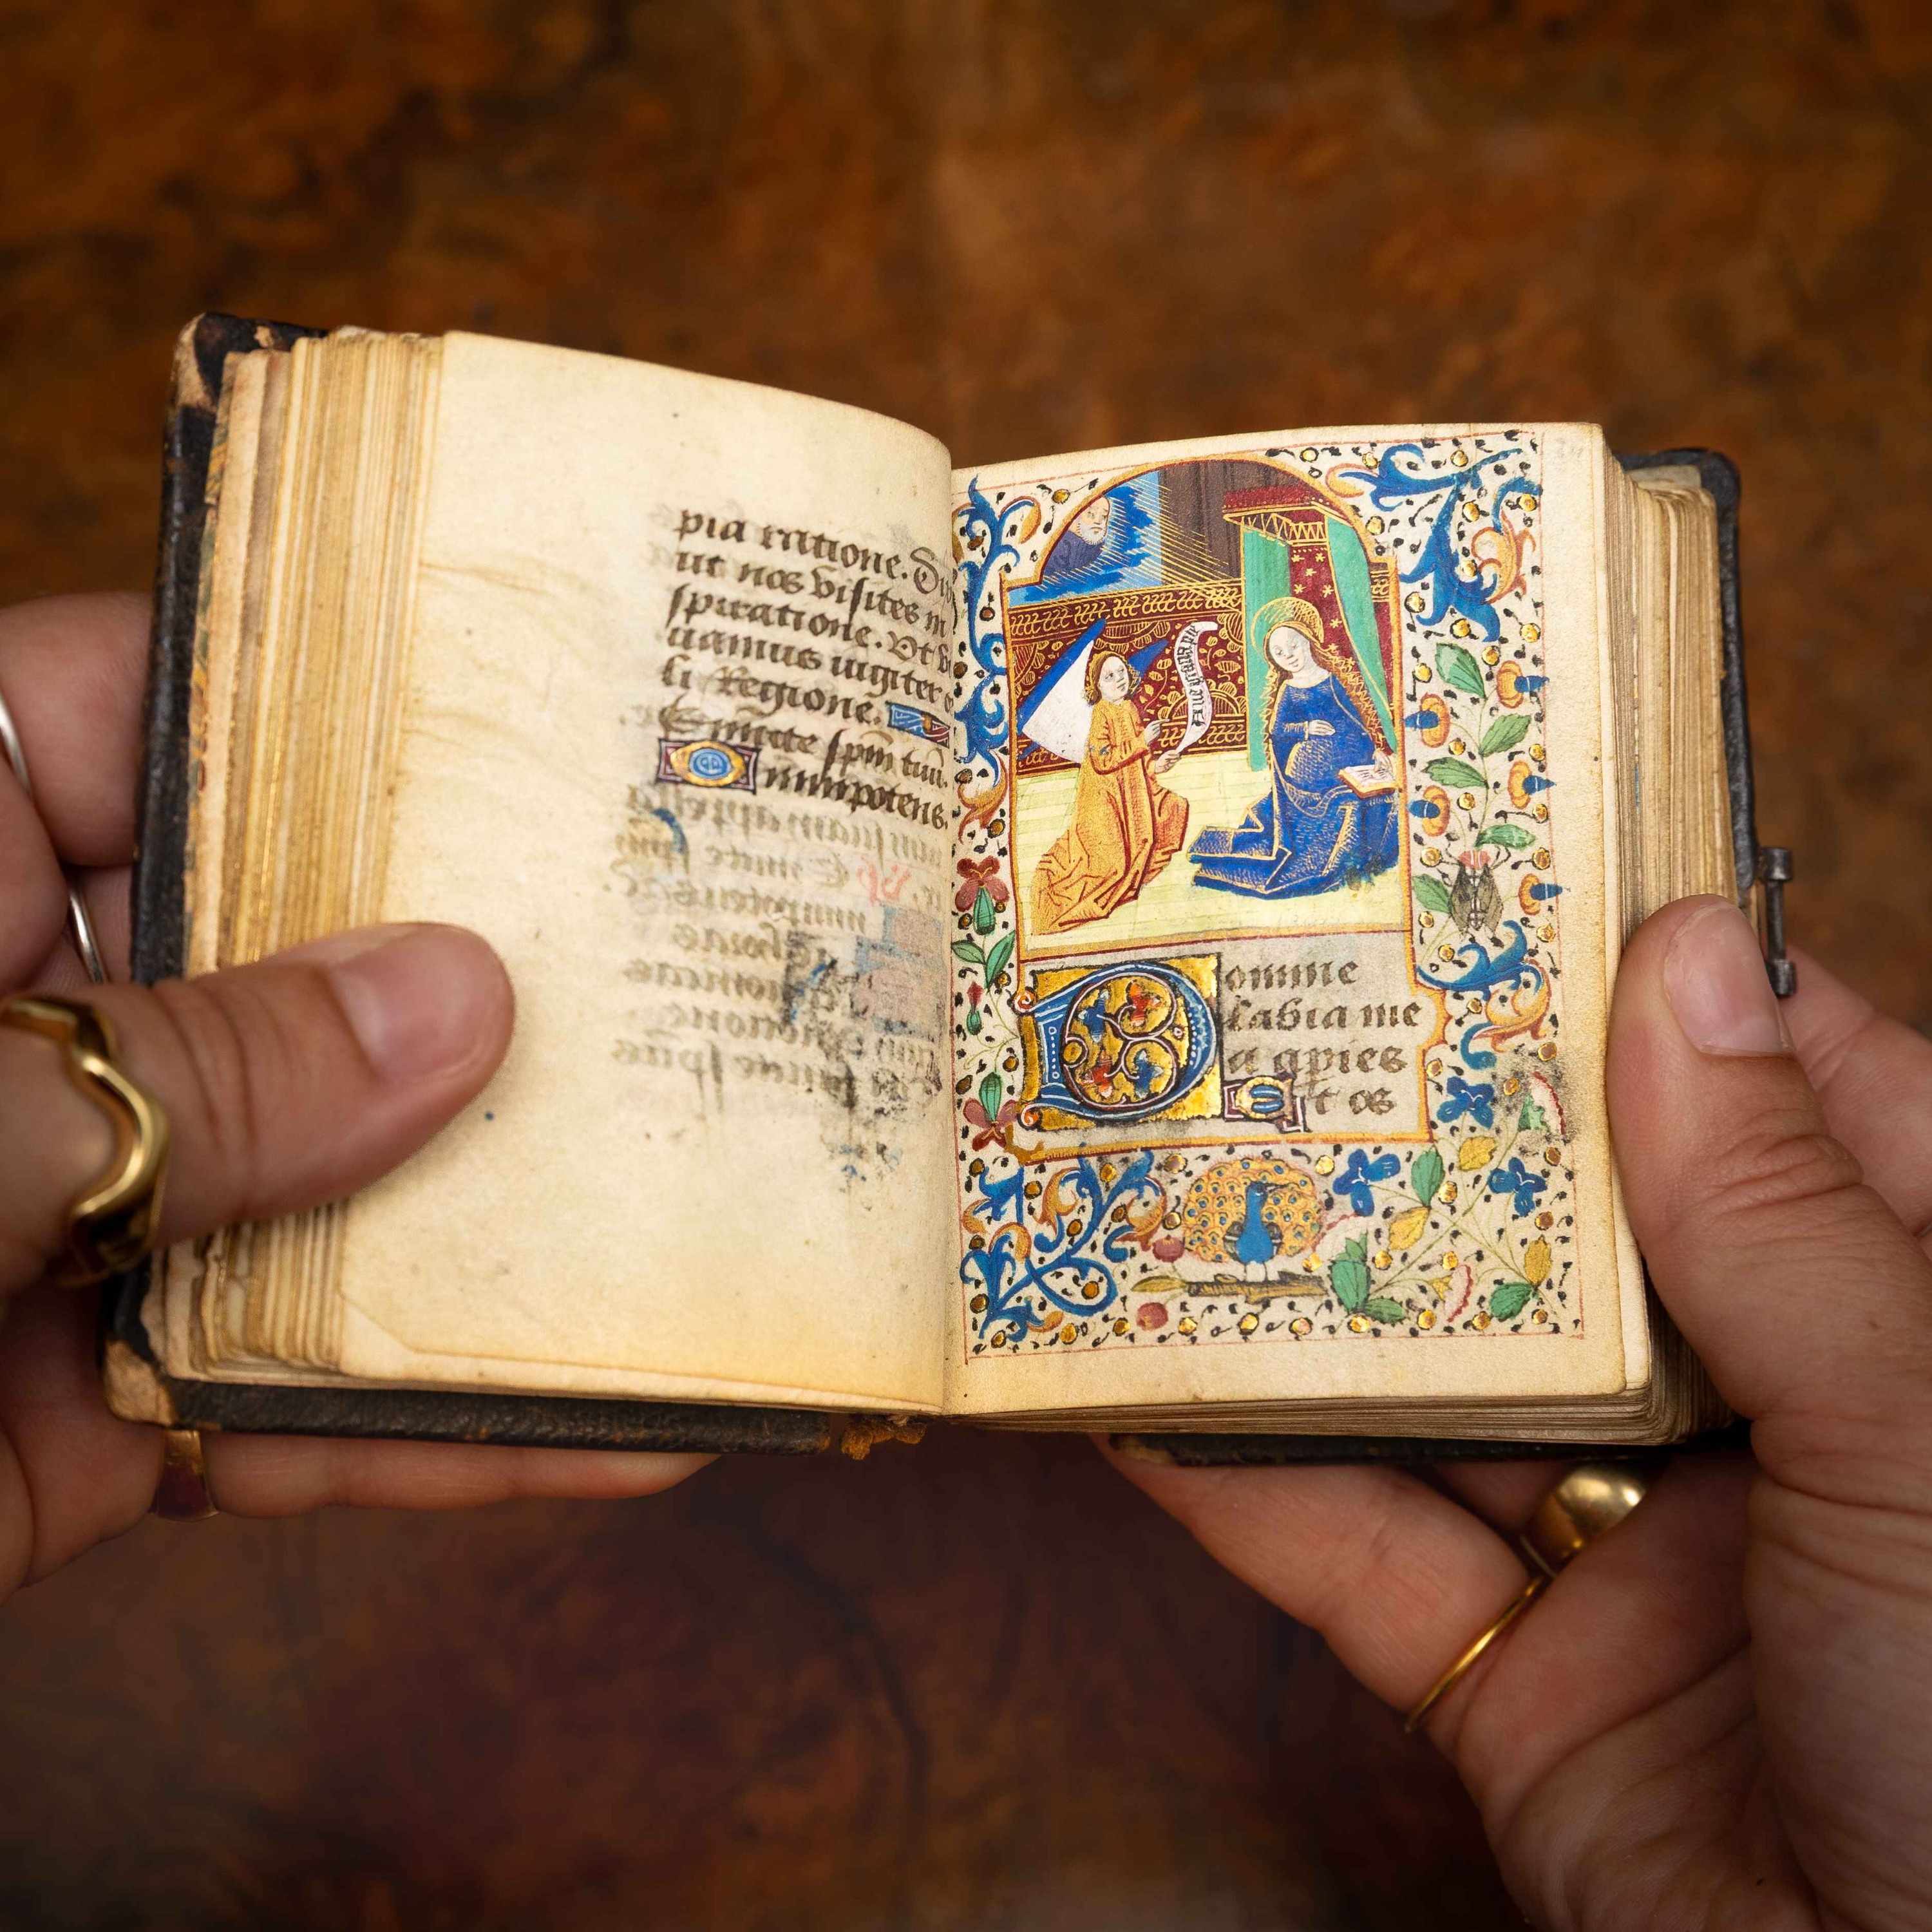 pia ratione. Di
ut nos visites in
spiratione. Vt vi
uamus iugiter
li Regione.
Emitte spm tuu.
Omnipotens.
Aue gracia ple
Domine
labia me
a apies
Et os